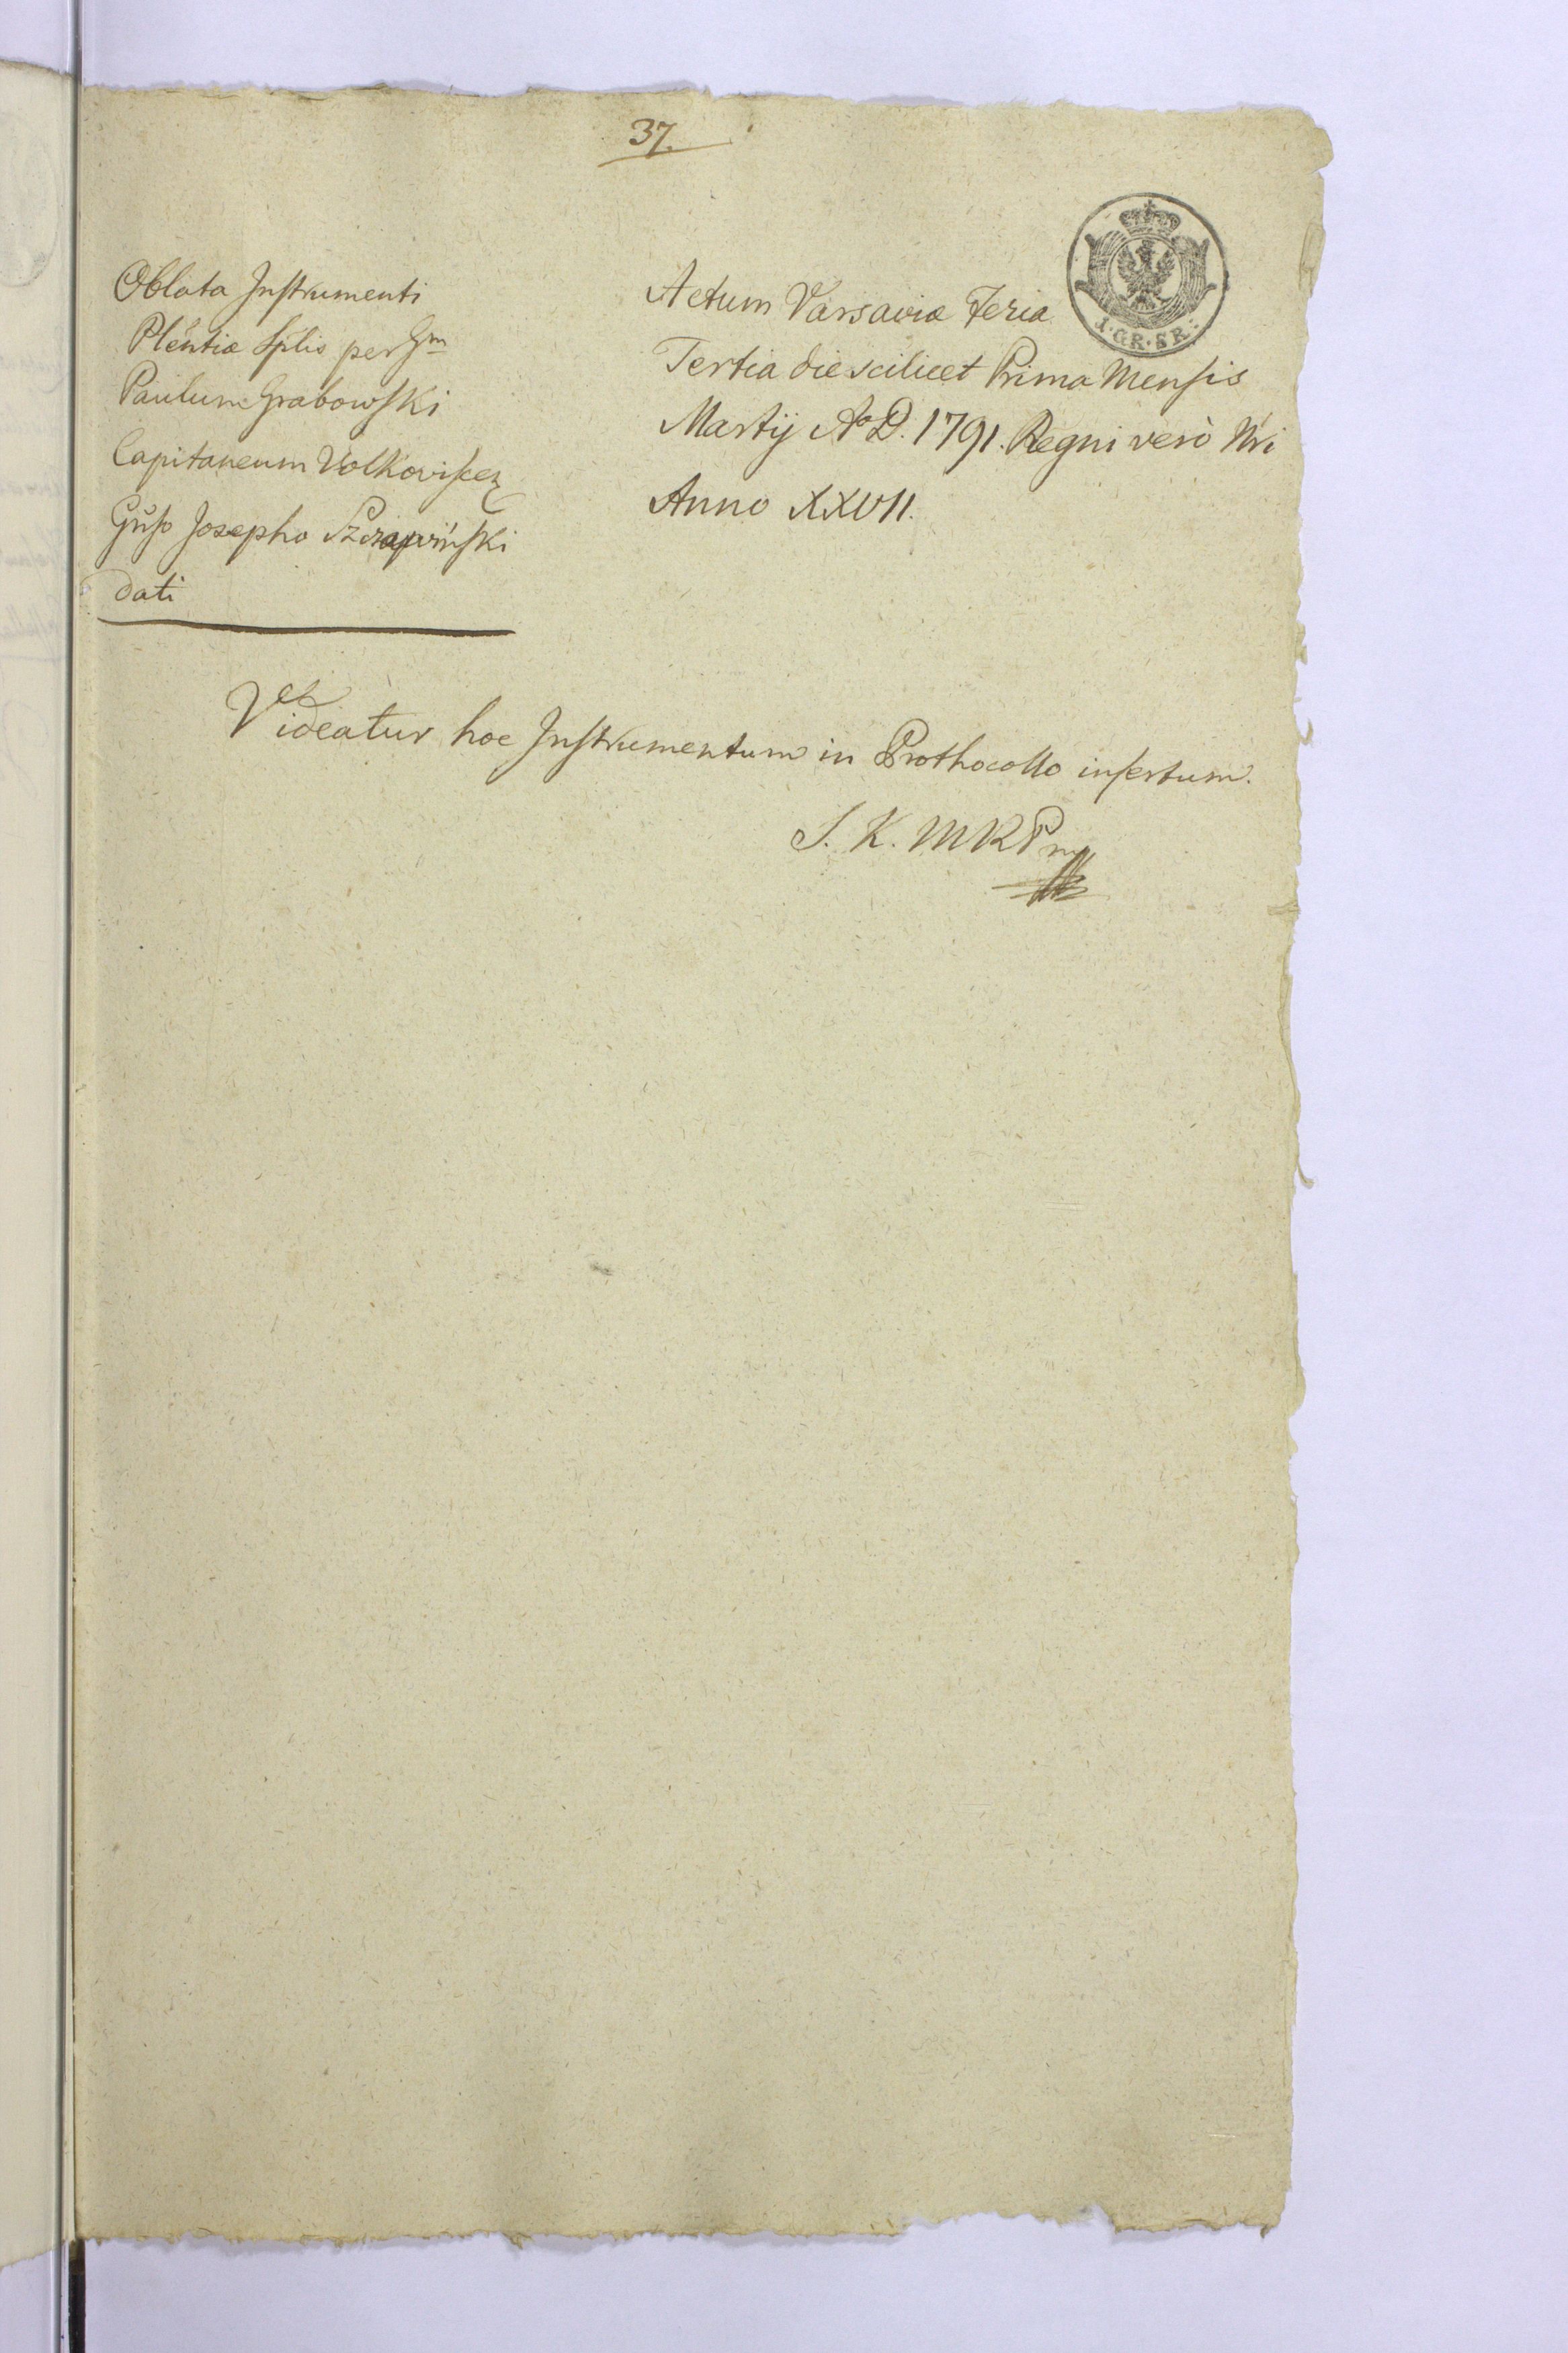 37.
Oblata Instrumenti
Pleńtiæ Splis per Gm
Paulum Grabowski
Capitaneum Volkoviscen
Gnso Josepho
dati
Actum Varsaviæ Feria
Tertia die scilicet Prima Mensis
Martij A.D. 1791. Regni verò Nri
Anno XXVII.
I. GR. SR.
Videatur hoc Instrumentum in Prothocollo insertum.
S. K. MKP